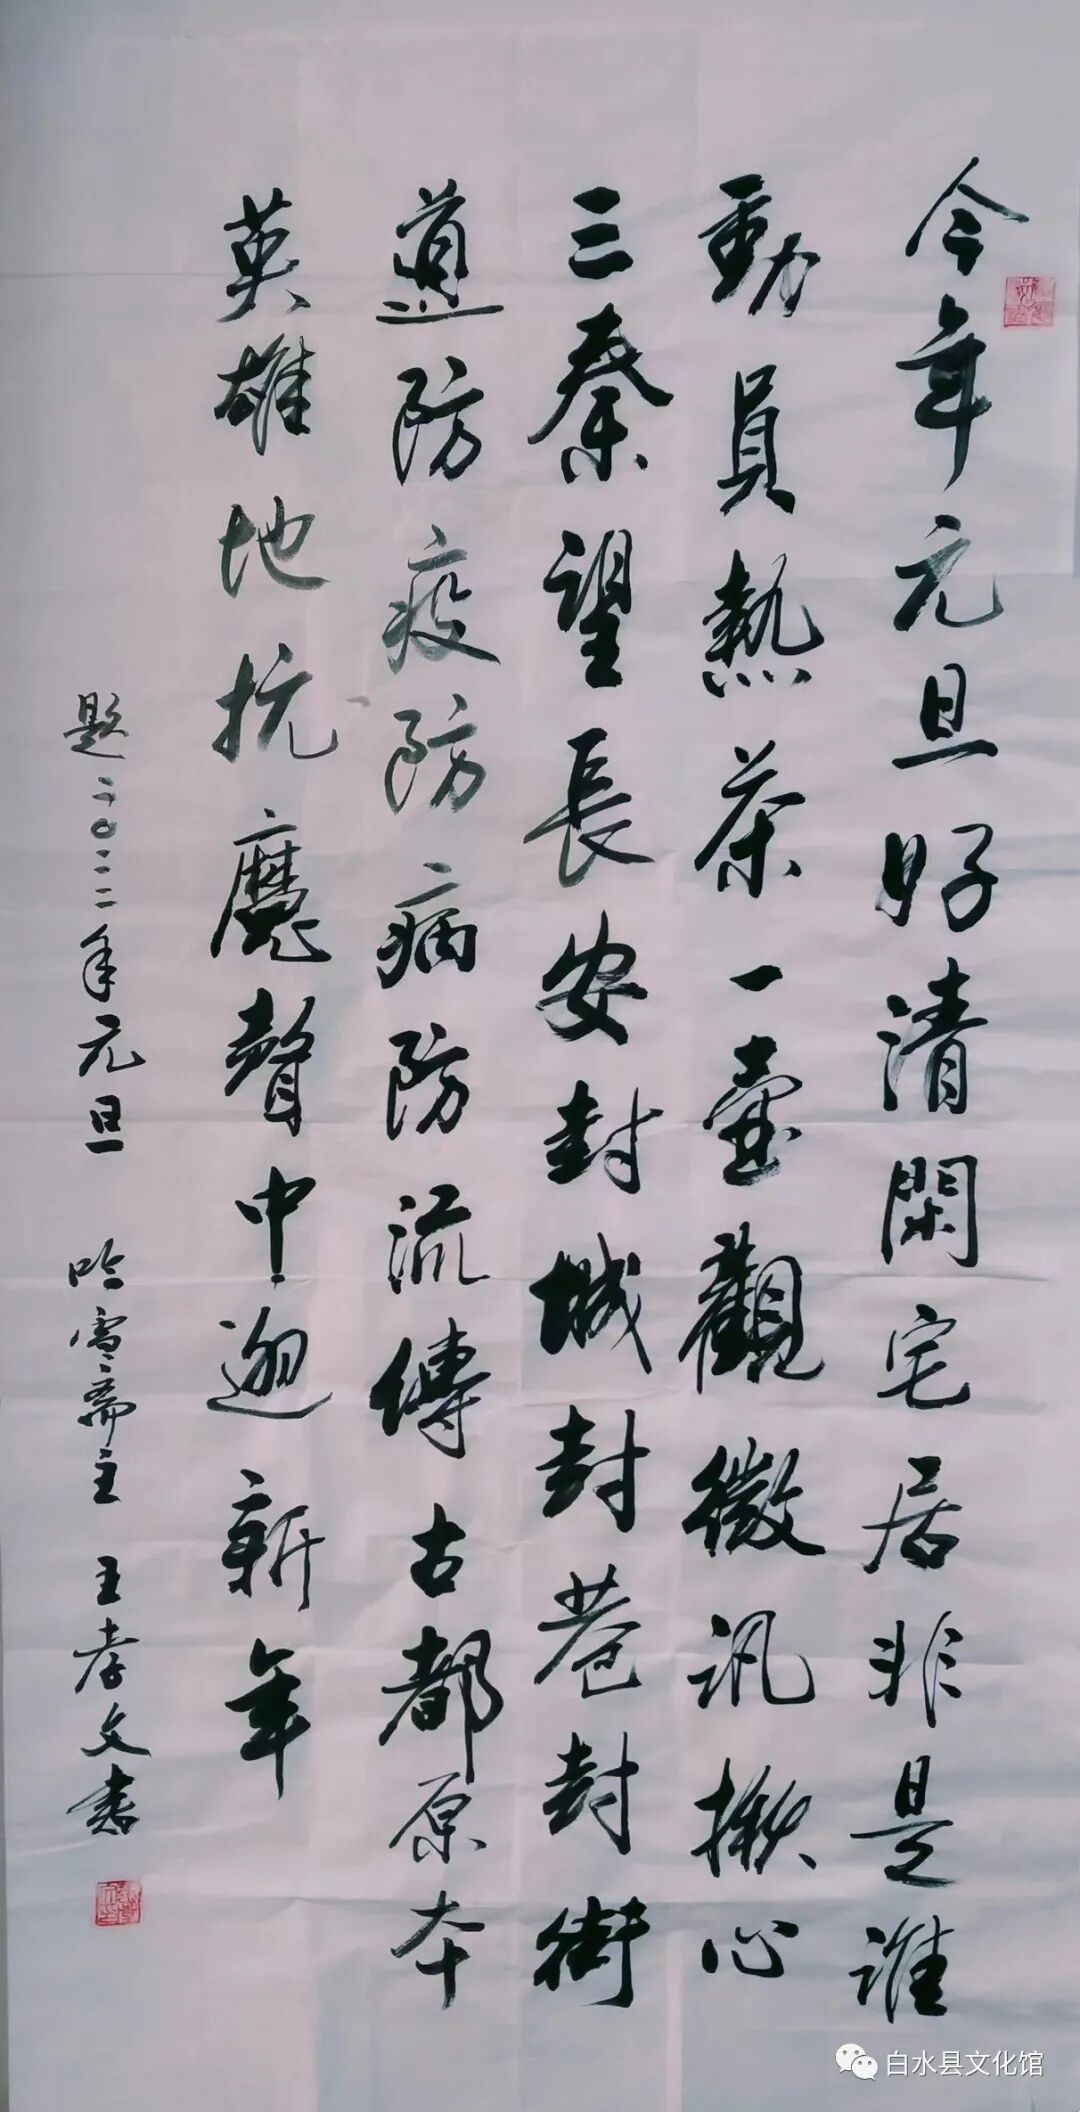 今年元旦好清閑宅居非是誰
動員熱茶一壺觀微訊揪心
三秦望長安封城封巷封街
道防疫防病防流傳古都原本
英雄地抗魔聲中迎新年
題二〇二二年元旦 吟雪斋主 王孝文書
白水县文化馆